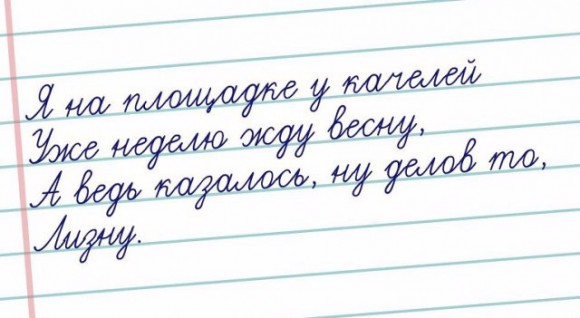 Я на площадке у качелей
Уже неделю жду весну,
А ведь казалось, ну делов то,
Лизну.